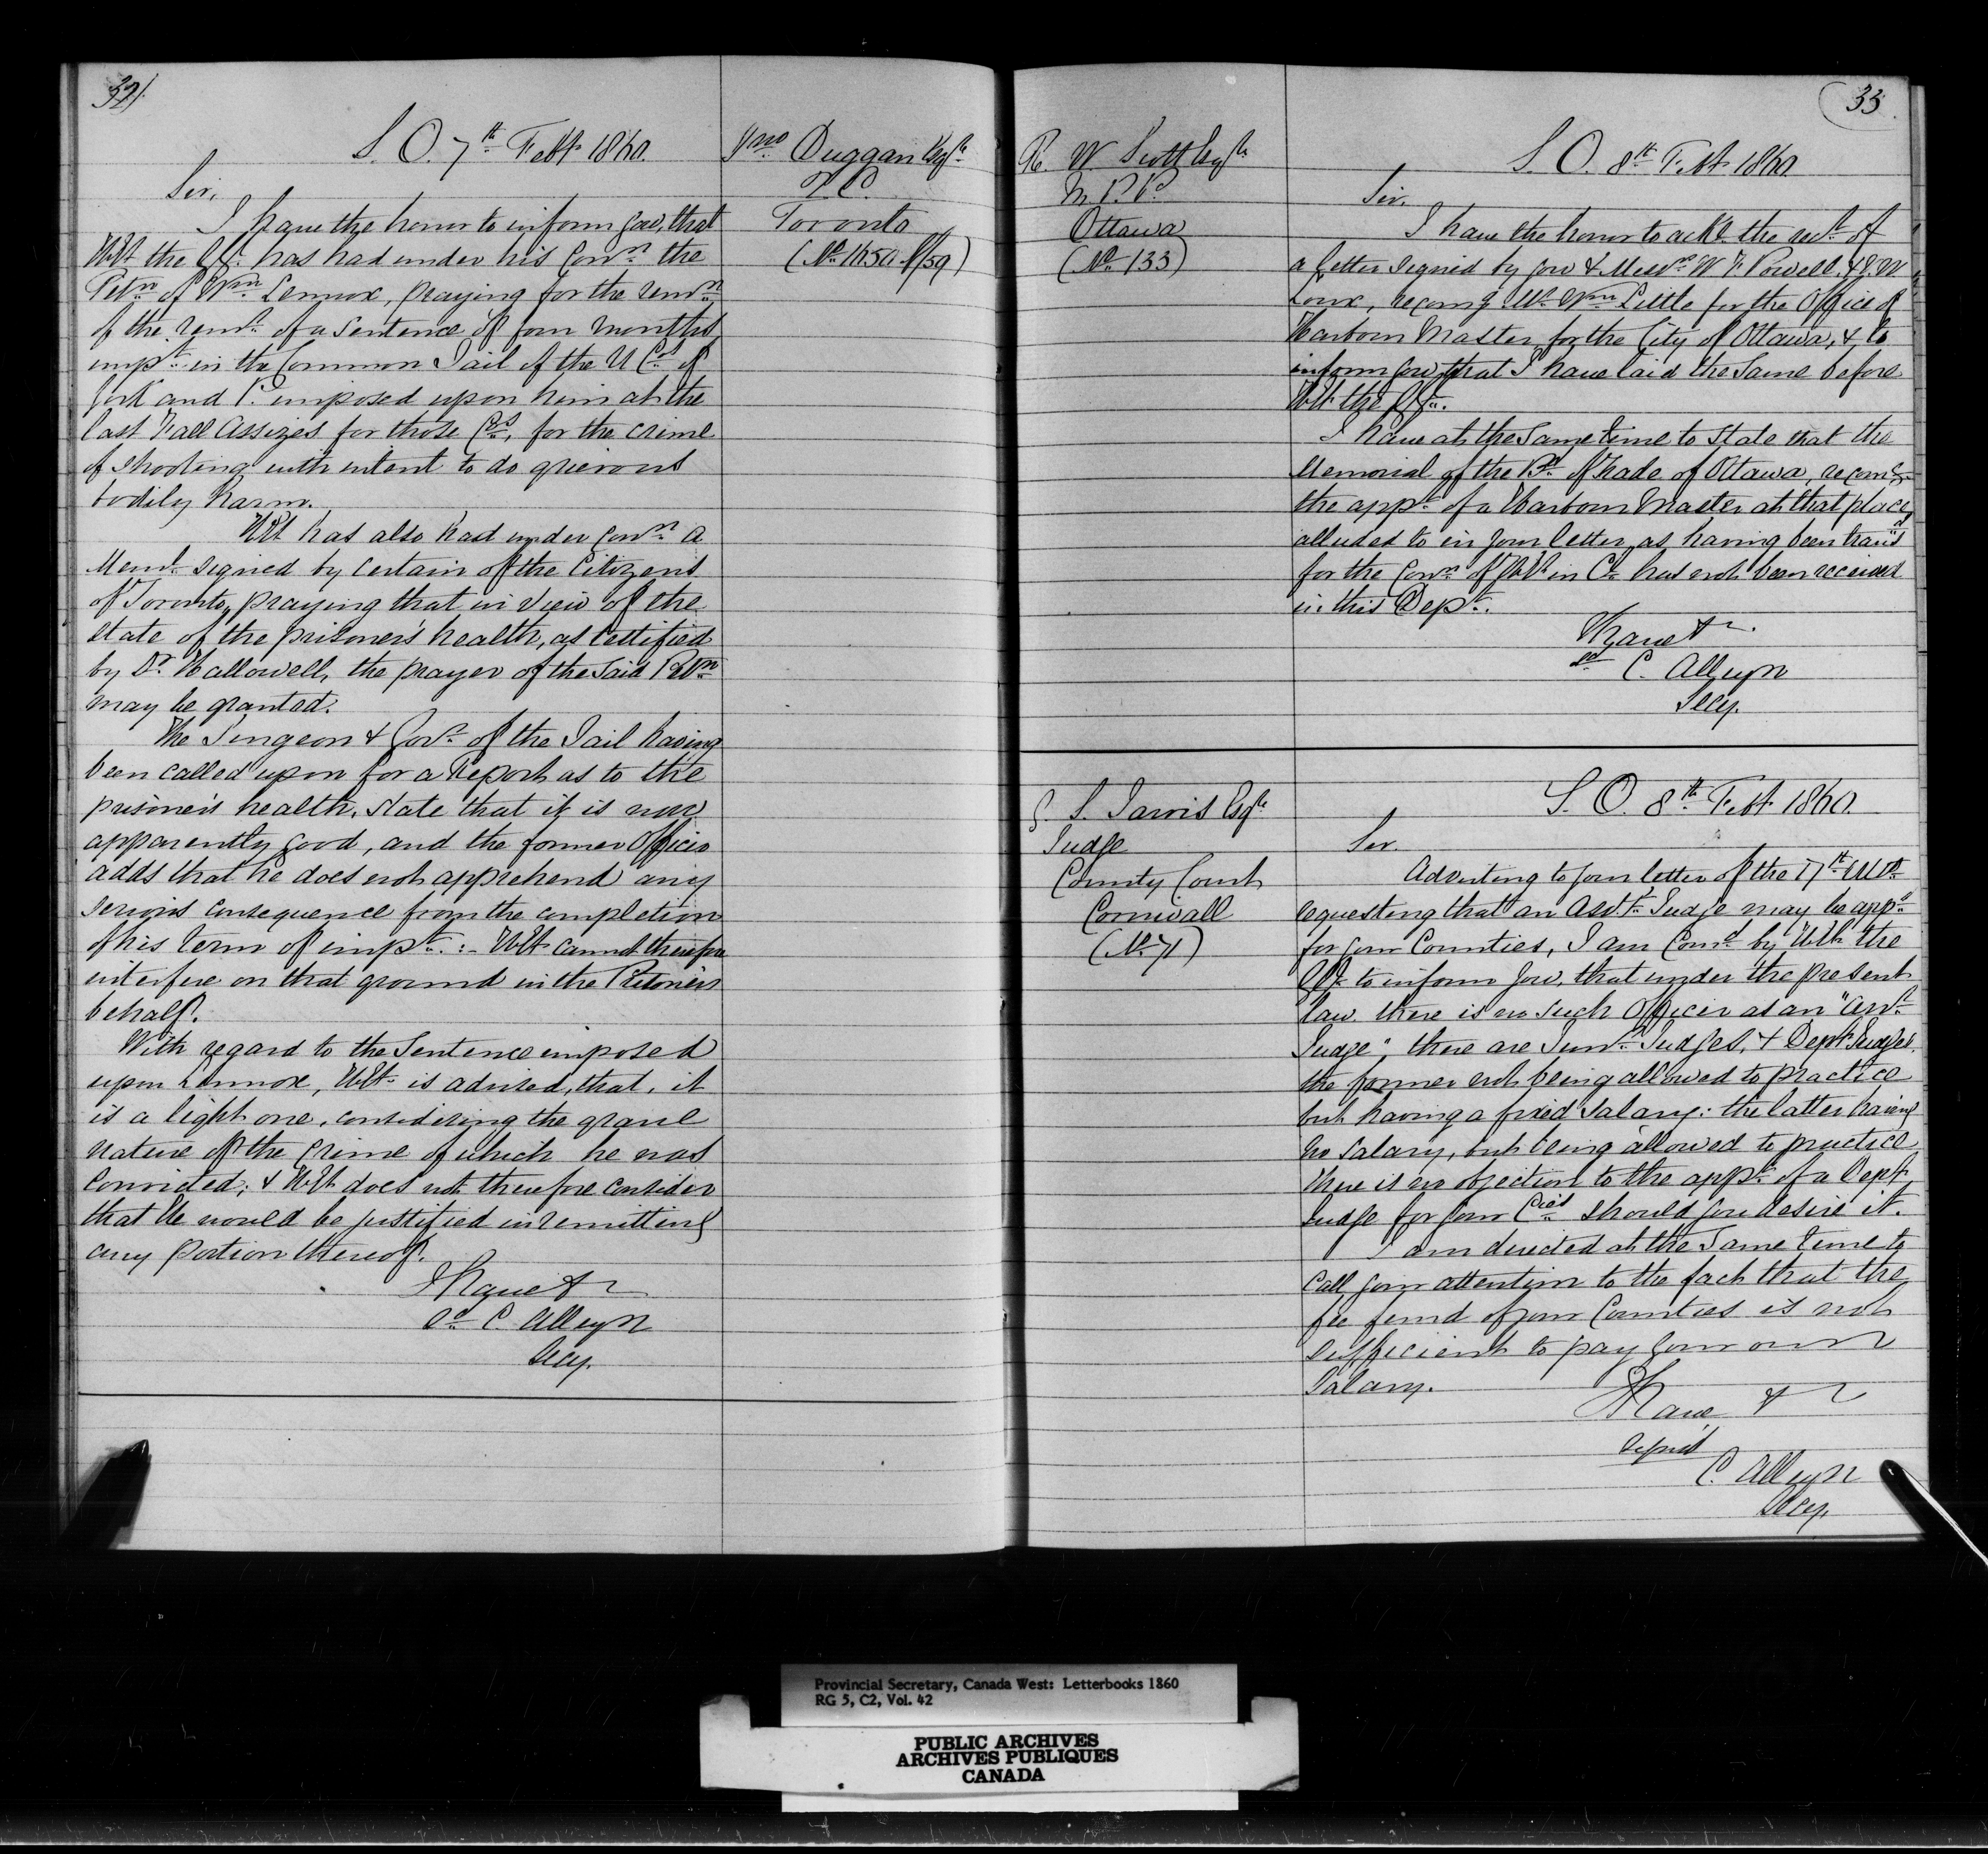 32
S. O. 7th Feby 1860.
Sir,
I have the honor to inform you, that
H.E. the G.G. has had under his Conn the
Petn of Wm Lennox, praying for the
of the remn of a sentence of four months
impt in the Common Jail of the U Cos of
York and P. imposed upon him at the
last Fall Assizes for those Cos, for the crime
of shooting with intent to do grievous
bodily harm.
H.E. has also had under Conn a
Meml signed by certain of the Citizens
of Toronto, praying that in view of the
state of the prisoner's health, as certified
by Dr Hallowell, the prayer of the said Petn
may be granted.
The Surgeon & Govr of the Jail having
been called upon for a Report as to the
prisoner's health, state that it is now
apparently good, and the former Officer
adds that he does not apprehend any
serious consequence from the completion
of his term of impt:- H.E. cannot therefore
interfere on that ground in the Petoner's
behalf.
With regard to the Sentence imposed
upon Lennox, H.E. is advised, that, it
is a light one, considering the grave
nature of the crime of which he was
convicted; & H.E. does not therefore consider
that He would be justified in remitting
any portion thereof.
I have &c
sd C. Alleyn
Secy.
Jno Duggan Esqre
Q.C.
Toronto
33
R. W Scott Esqre
M.P.P.
Ottawa
(No 133)
S. O. 8th Feby 1860
Sir.
I have the honor to ackn the rect of
a letter signed by you & Messrs W F. Powell, & G. W
recomg Mr Wm Little for the Office of
Harbour Master for the City of Ottawa, & to
inform you that I have laid the same before
H.E. the G.G.
I have at the same time to state that the
Memorial of the Bd of Trade of Ottawa, recomg
the appt of a Harbour Master at that place,
alluded to in your letter as having been transd
for the Conn of H.E. in Cl has not been received
in this Dept.
I have &c
sd C. Alleyn
Secy.
G. S. Jarvis Esqre
Judge
County Court
Cornwall
(No 71)
S. O. 8th Feby 1860.
Sir.
Adverting to your letter of the 17th Ulto
requesting that an Asst Judge may be appd
for your Counties, I am Comd by H.E. the
G.G. to inform you, that under the present
law there is no such Officer as an "Asst
Judge"; there are Junr Judges, & Depy Judges.
the former not being allowed to practice
but having a fixed salary: the latter having
no salary, but being allowed to practice
There is no objection to the appt of a Depy
Judge for your Cies should you desire it.
I am directed at the same time to
call your attention to the fact that the
fee fund of your Counties is not
sufficient to pay your own
Salary.
I have &c
signed
C. Alleyn
Secy.
Provincial Secretary, Canada West: Letterbooks 1860
RG 5, C2, Vol. 42
PUBLIC ARCHIVES
ARCHIVES PUBLIQUES
CANADA